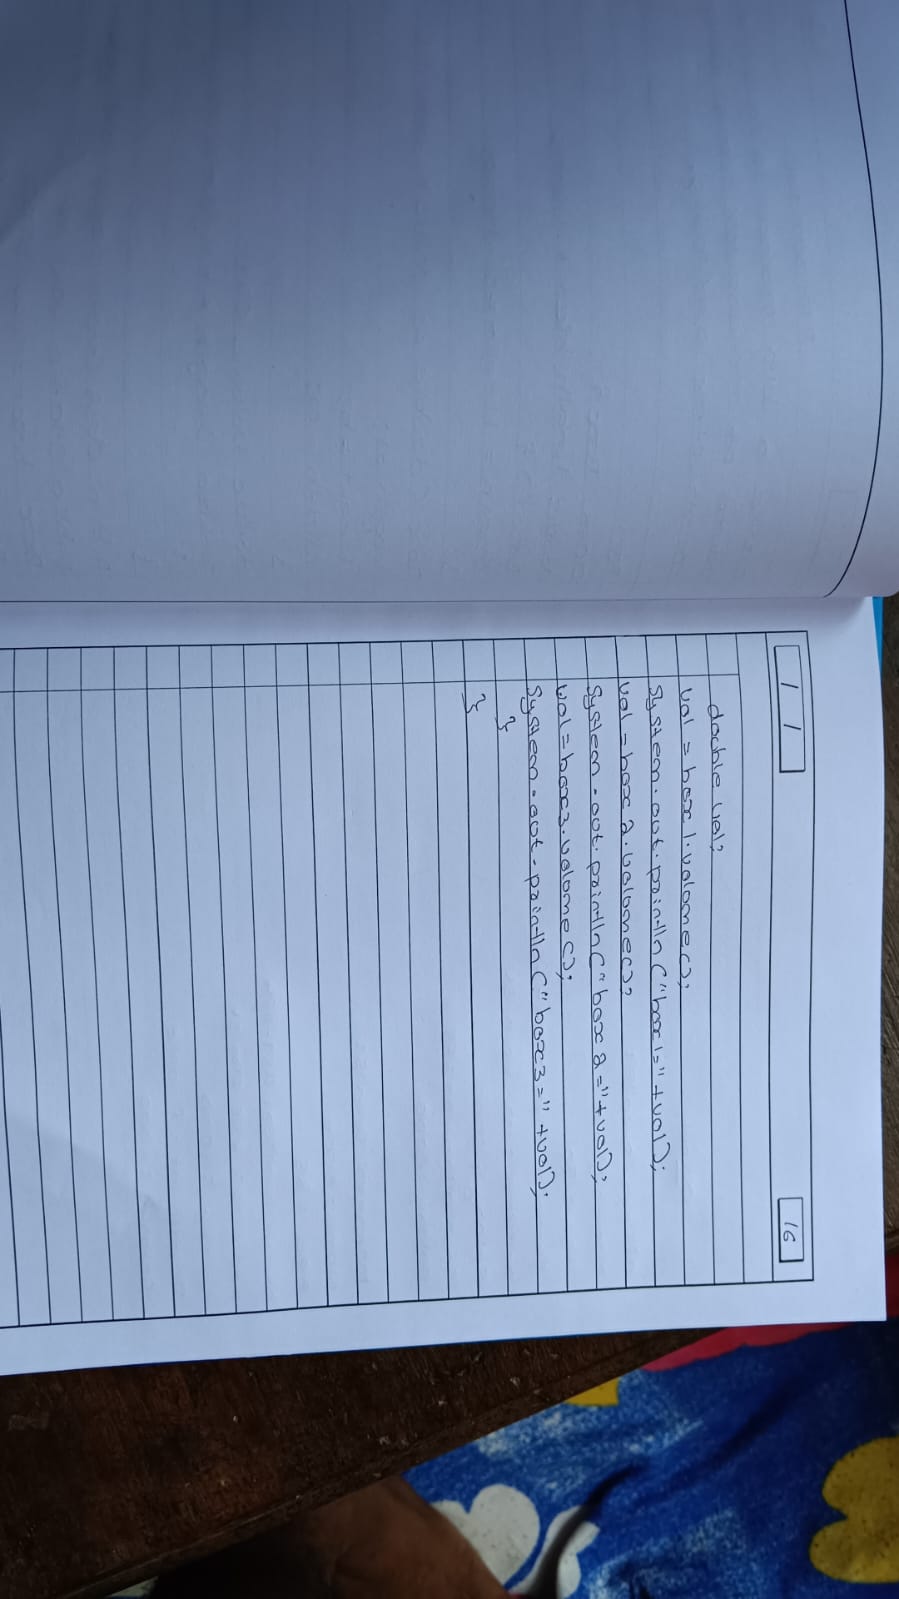 / /
16
double vol;
vol = box1.volume();
System.out.println("box1="+vol);
vol = box2.volume();
System.out.println("box2="+vol);
vol = box3.volume();
System.out.println("box3="+vol);
}
}